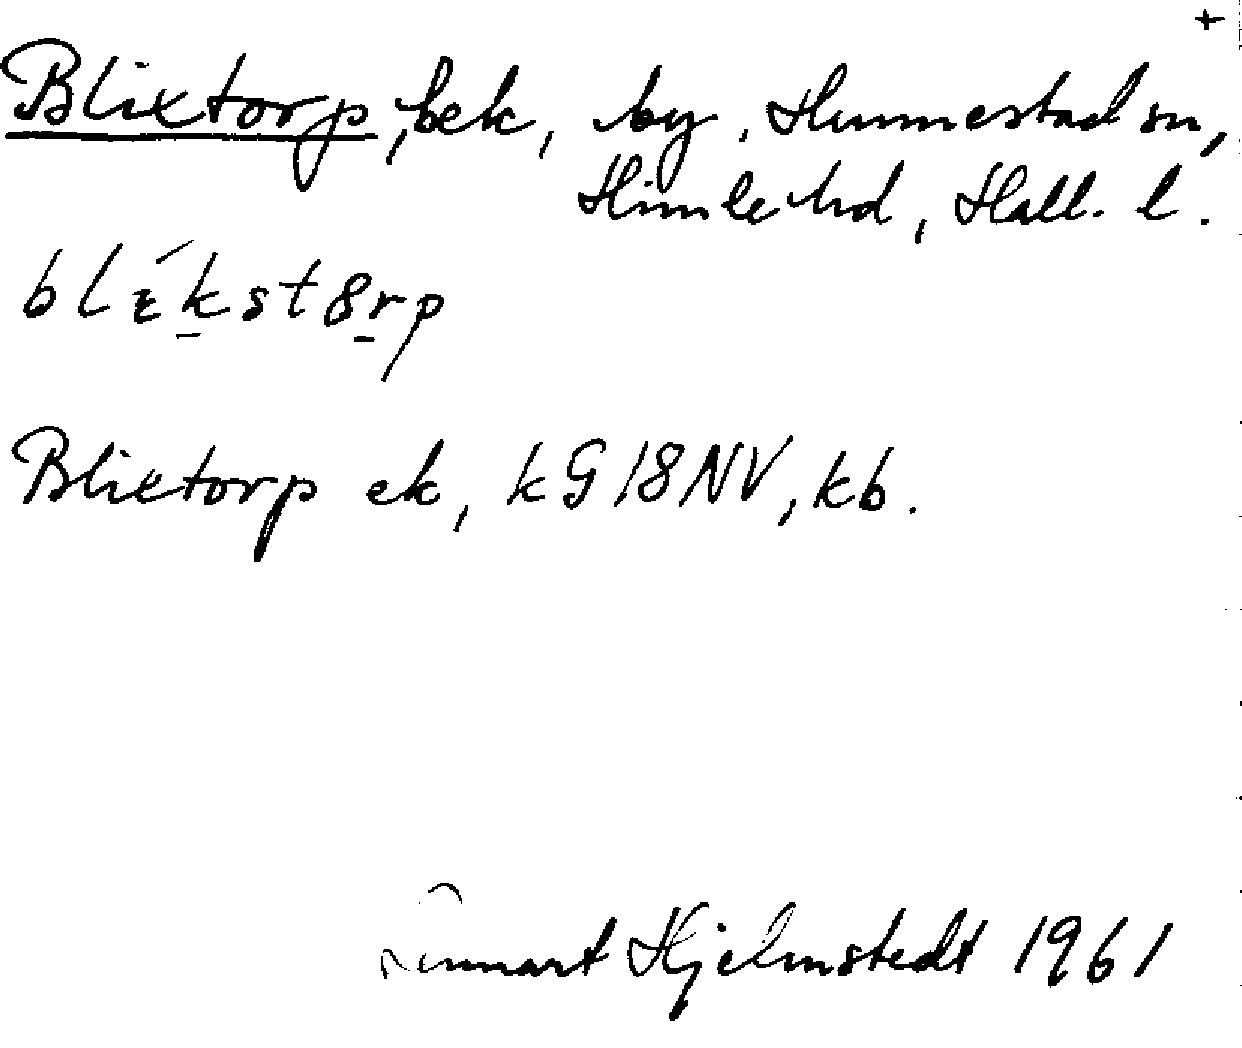 +
Blixtorp, bek, by, Hunnestad sn,
Himle hd, Hall. l.
blɛ́kstȣrp
Blixtorp ek, kG18NV, kb.
Lennart Hjelmstedt 1961